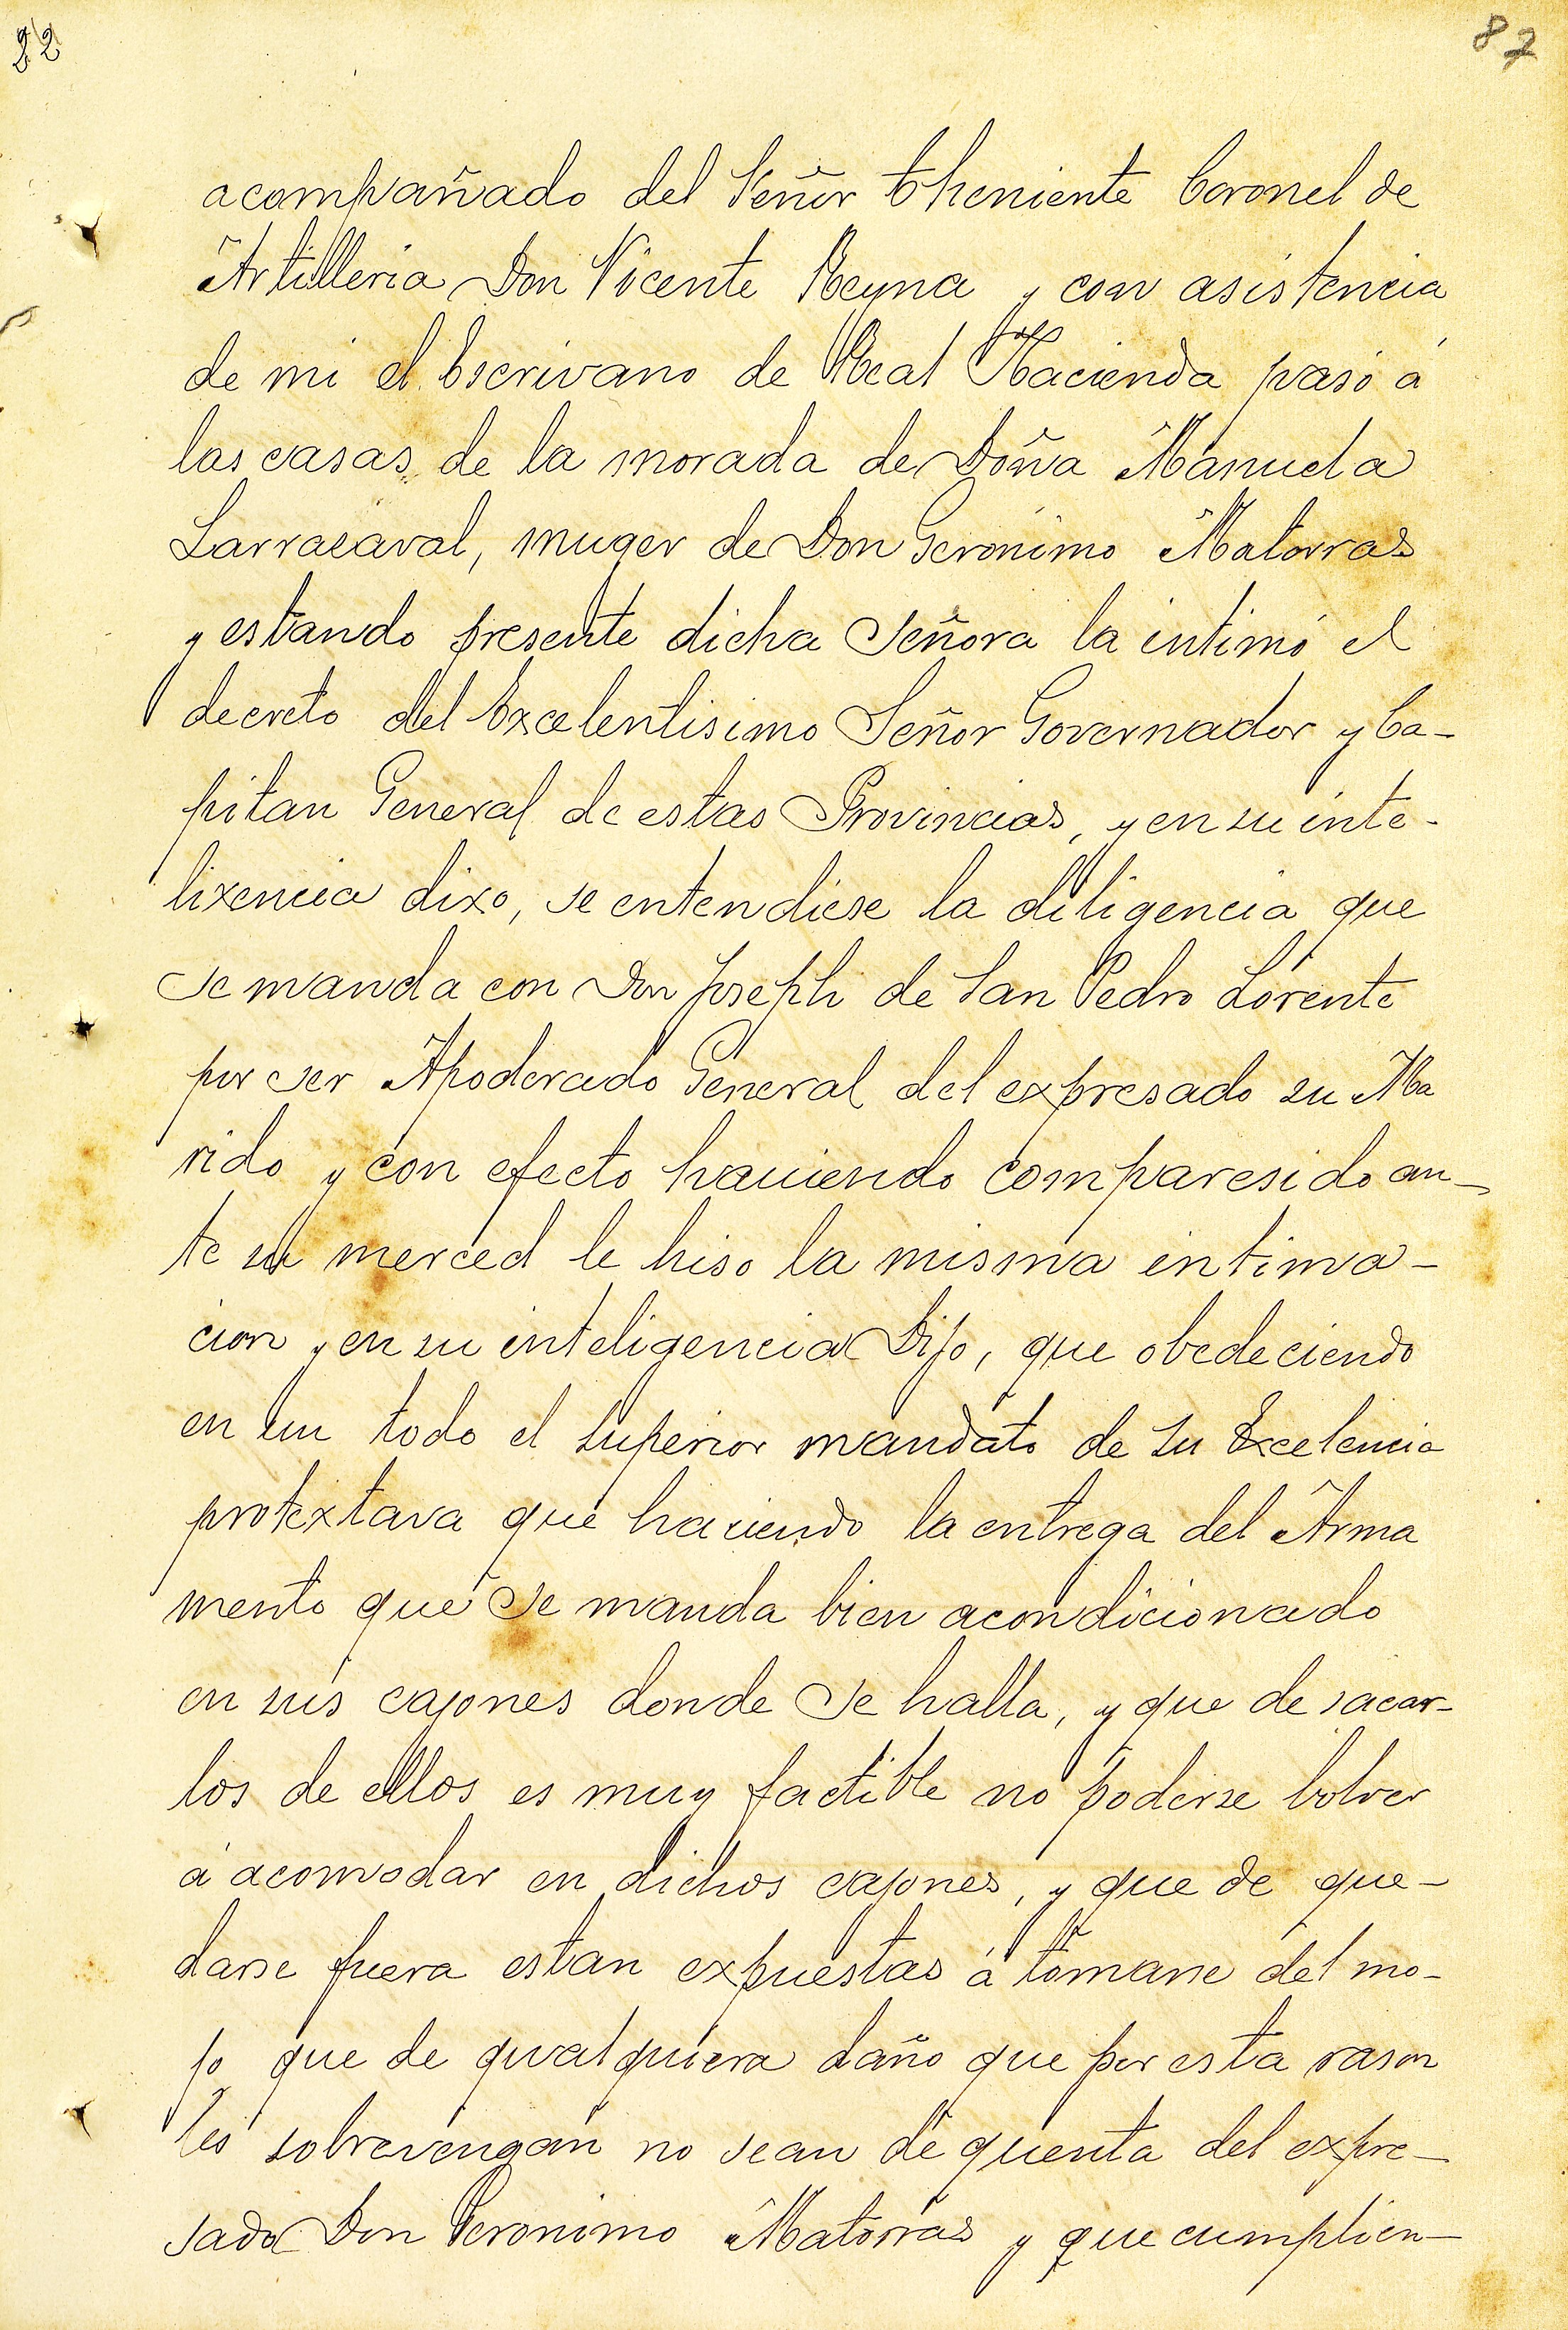 22
87
acompañado del Señor theniente Coronel de
Artilleria Don Vicente Reyna y con asistencia
de mi el Escrivano de Real Hacienda pasó á
las casas de la morada de Doña Manuela
Larrasaval, muger de Don Geronimo Matorras
y estando presente dicha Señora la intimó el
decreto del Excelentisimo Señor Governador y Ca-
pitan General de estas Provincias, y en su inte-
lixencia dixo, se entendiese la diligencia que
se manda con Don Joseph de San Pedro Lorente
por ser Apoderado General del expresado su Ma
rido y con efecto haviendo comparesido an-
te su merced le hiso la misma intima-
cion y en su inteligencia Dijo, que obedeciendo
en un todo el superior mandato de su Excelencia
protextava que haciendo la entrega del Arma
mento que se manda bien acondicionado
en sus cajones donde se halla, y que de sacar-
los de ellos es muy factible no poderse bolver
á acomodar en dichos cajones, y que de que-
darse fuera estan expuestas á tomarse del mo-
jo que de qualquiera daño que por esta rason
les sobrevengan no sean de quenta del expre-
sado Don Geronimo Matorras y que cumplien-